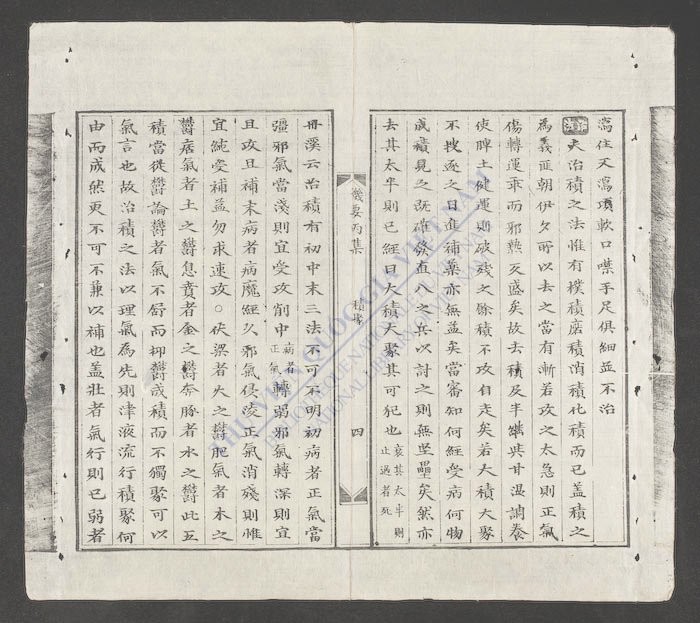 瀉住又瀉項軟口噤手足俱細並不治
夫治積之法惟有撲積磨積消積化積而已蓋積之
為義匪朝伊夕所以去之當有漸若攻之太急則正氣
傷轉運乖而邪熱反盛矣故去積及半繼與甘温調養
使脾土健運則破殘之餘積不攻自走矣若大積大聚
不搜逐之日進補藥亦無益矣當審知何經受病何物
成積見之既確發直入之兵以討之則無堅壘矣然亦
去其太半則已經曰大積大聚其可犯也衰其太半則
止過者死
機要丙集
積聚
四
丹溪云治積有初中末三法不可不明初病者正氣當
彊邪氣當淺則宜受攻削中病者正氣轉弱邪氣轉深則宜
且攻且補末病者病魔經久邪氣侵凌正氣消殘則惟
宜純受補益勿求速攻○伏梁者火之鬱肥氣者木之
鬱痞氣者土之鬱息賁者金之鬱奈豚者水之鬱此五
積當從鬱論鬱者氣不舒而抑鬱成積而不獨聚可以
氣言也故治積之法以理氣為先則津液流行積聚何
由而成然更不可不兼以補也蓋壯者氣行則已弱者
THƯ VIỆN QUỐC GIA VIỆT NAM
NATIONAL LIBRARY OF VIETNAM